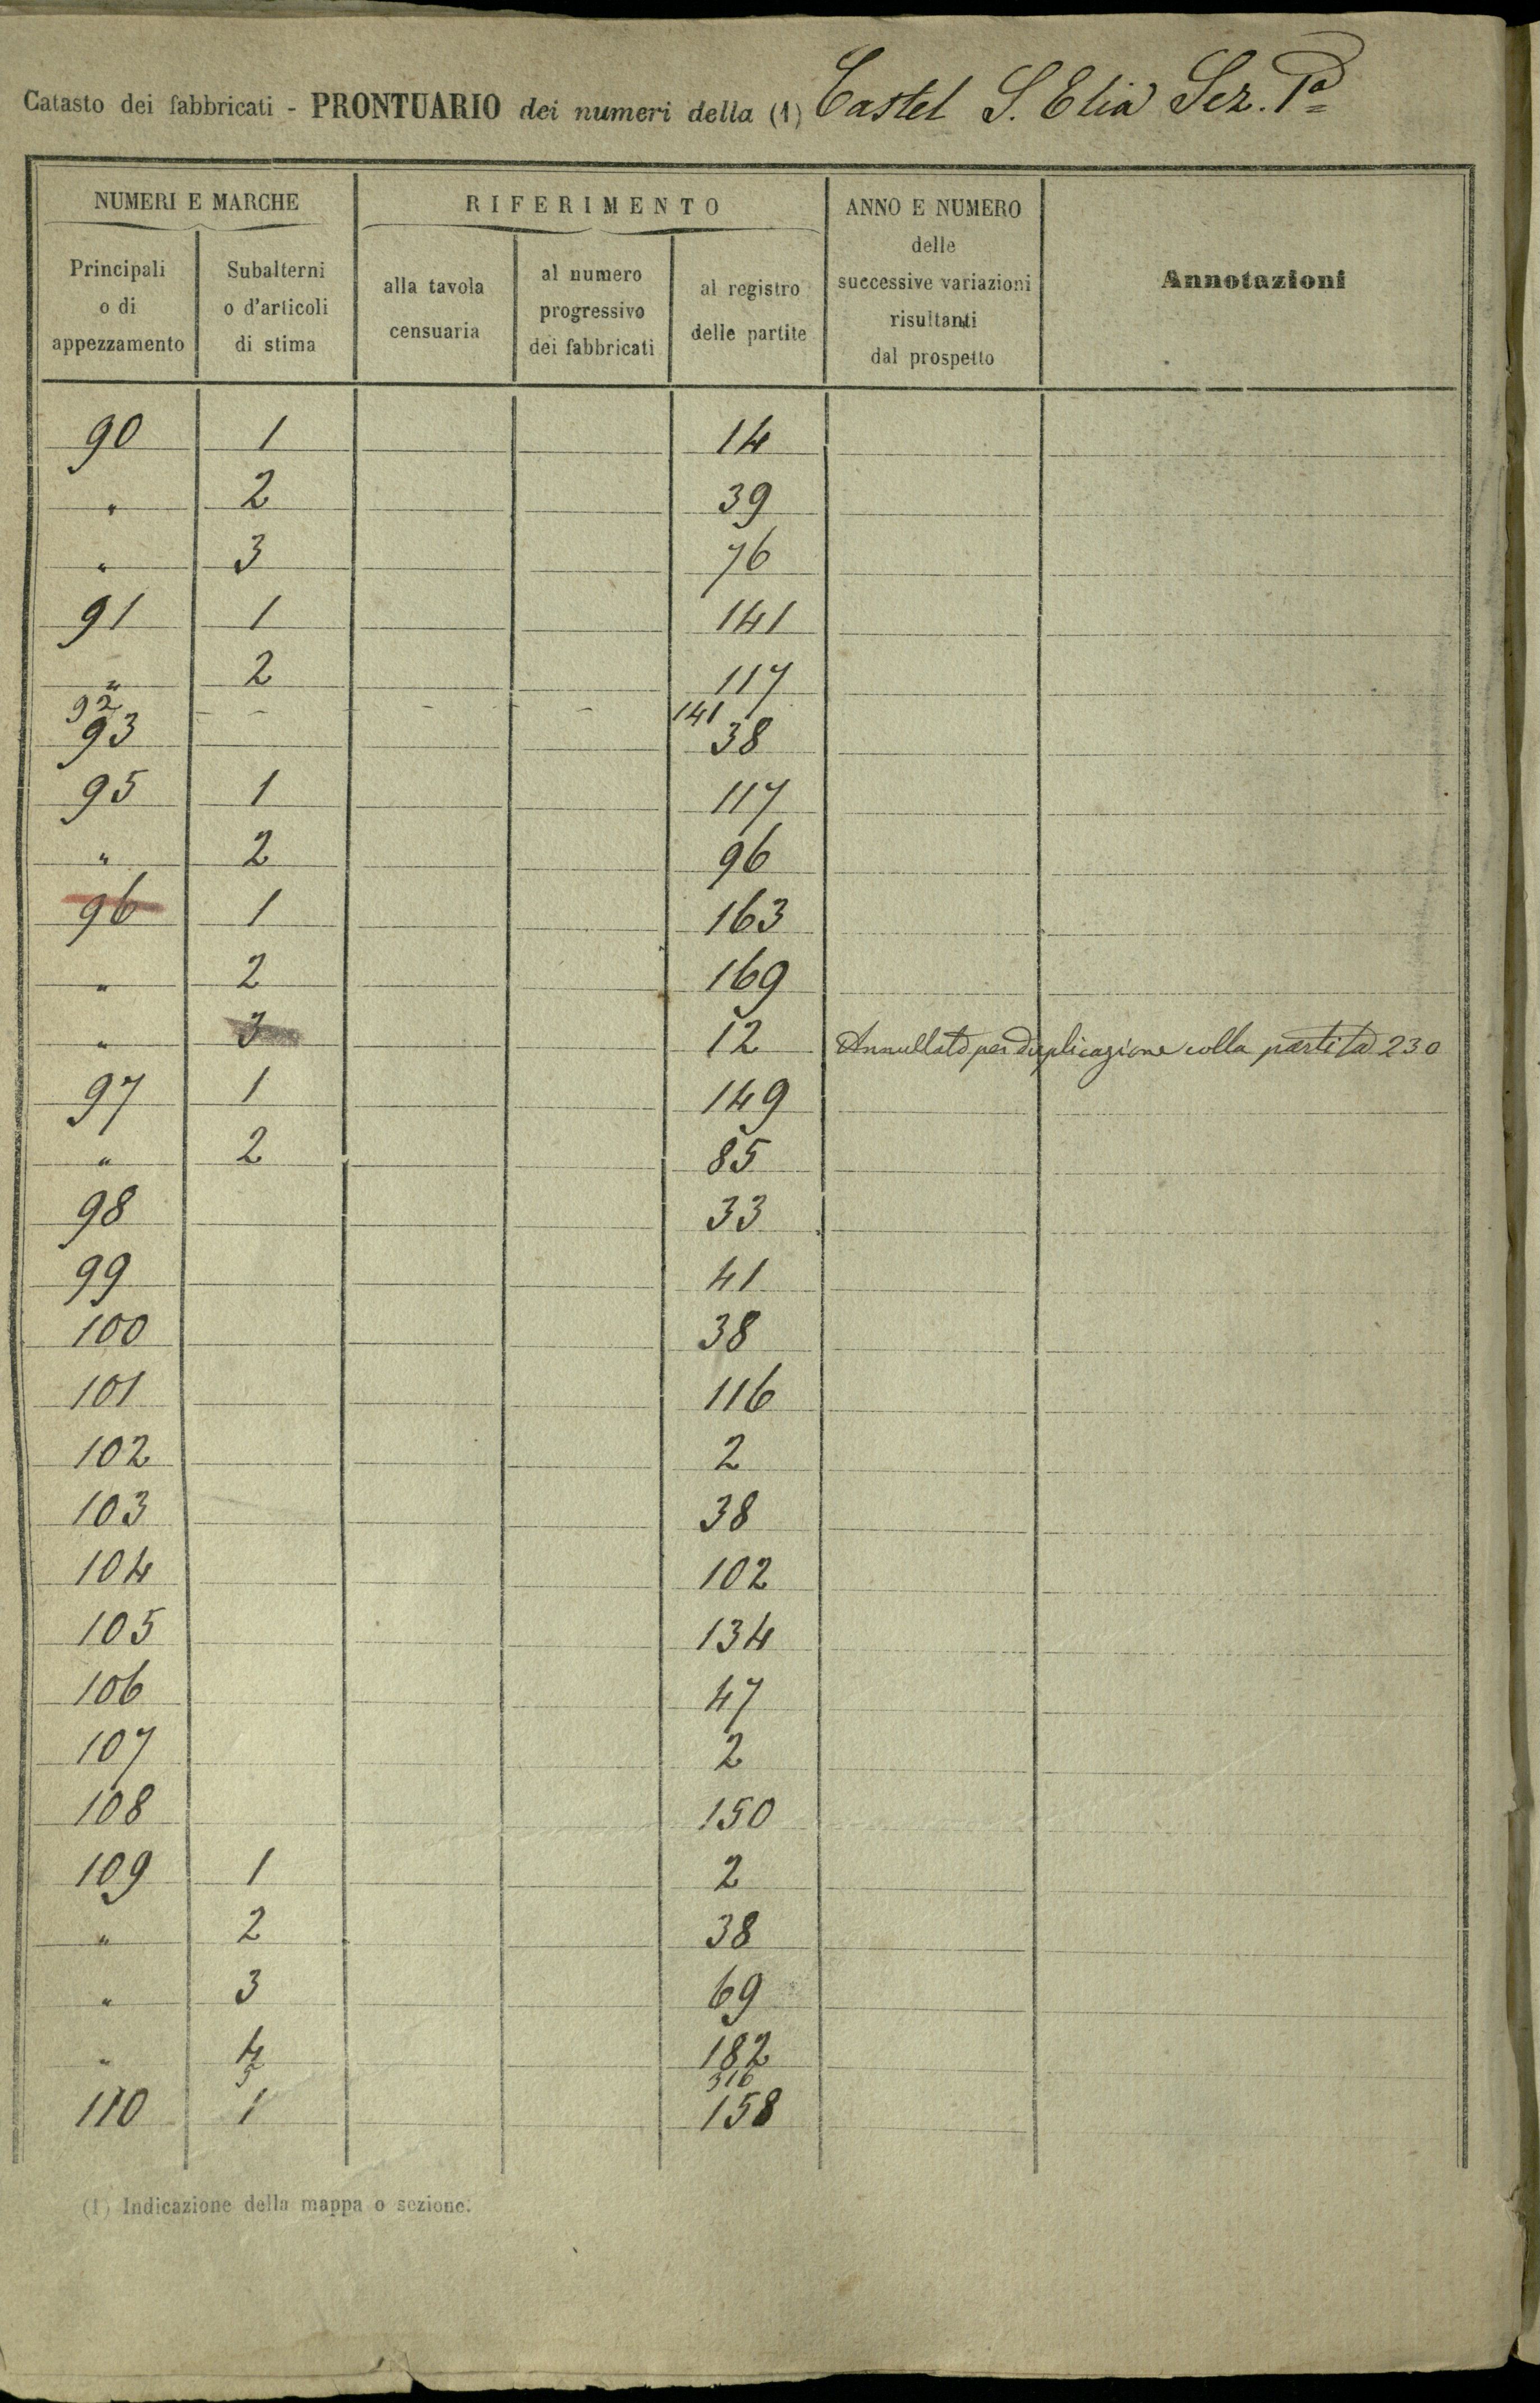 Catasto dei fabbricati - PRONTUARIO dei numeri della (1) Castel S. Elia Sez. 1ª
NUMERI E MARCHE
Principali
o di
appezzamento
Subalterni
o d'articoli
di stima
RIFERIMENTO
alla tavola
censuaria
al numero
progressivo
dei fabbricati
al registro
delle partite
ANNO E NUMERO
delle
successive variazioni
risultanti
dal prospetto
Annotazioni
90 1 14
" 2 39
" 3 76
91 1 141
" 2 117
92 - - - - 141
93 38
95 1 117
" 2 96
96 1 163
" 2 169
" 3 12 Annullato per duplicazione colla partita 230
97 1 149
" 2 85
98 33
99 41
100 38
101 116
102 2
103 38
104 102
105 134
106 47
107 2
108 150
109 1 2
" 2 38
" 3 69
" 4 182
5 316
110 1 158
(1) Indicazione della mappa o sezione.